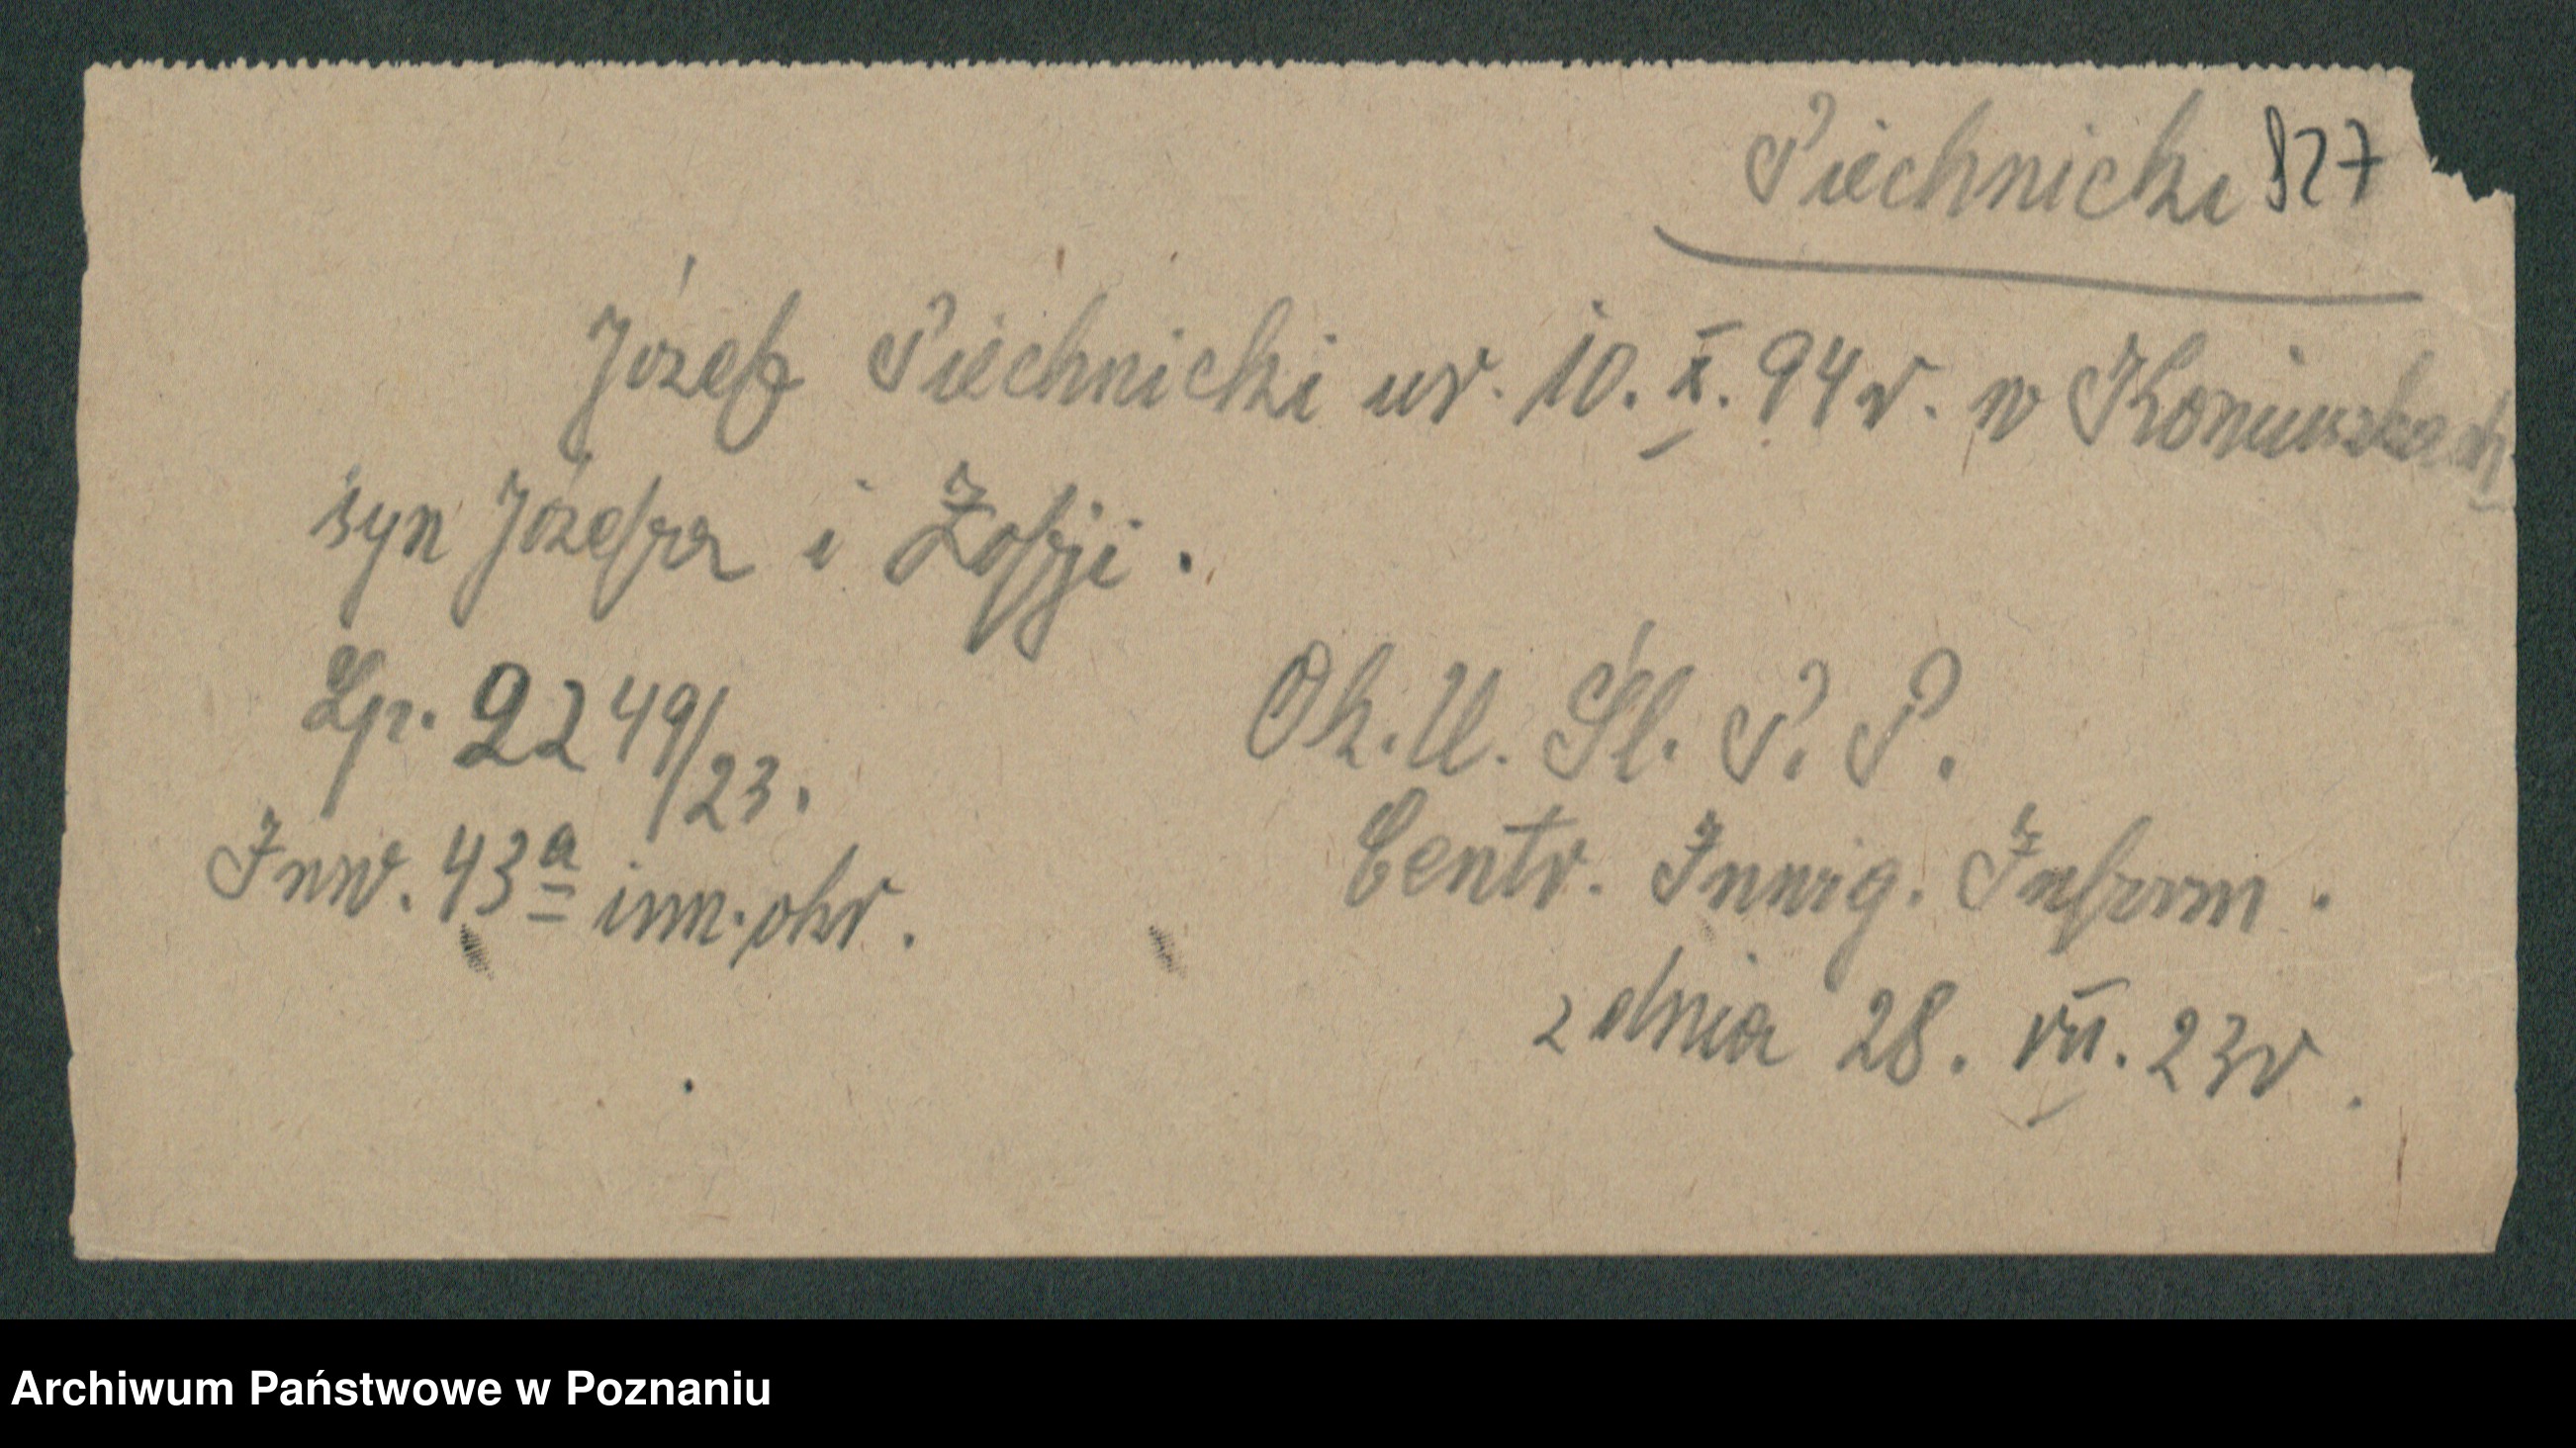 Piechnicki 827
Józef Piechnicki ur. 10. X. 94 r. w Koniuszkach
syn Józefa i Zofji.
Lp. 2249/23.
Inw. 43a inn. okr.
Ok. U. Śl. P. P.
Centr. Inwig. Inform.
z dnia 28. VII. 23 r.
Archiwum Państwowe w Poznaniu